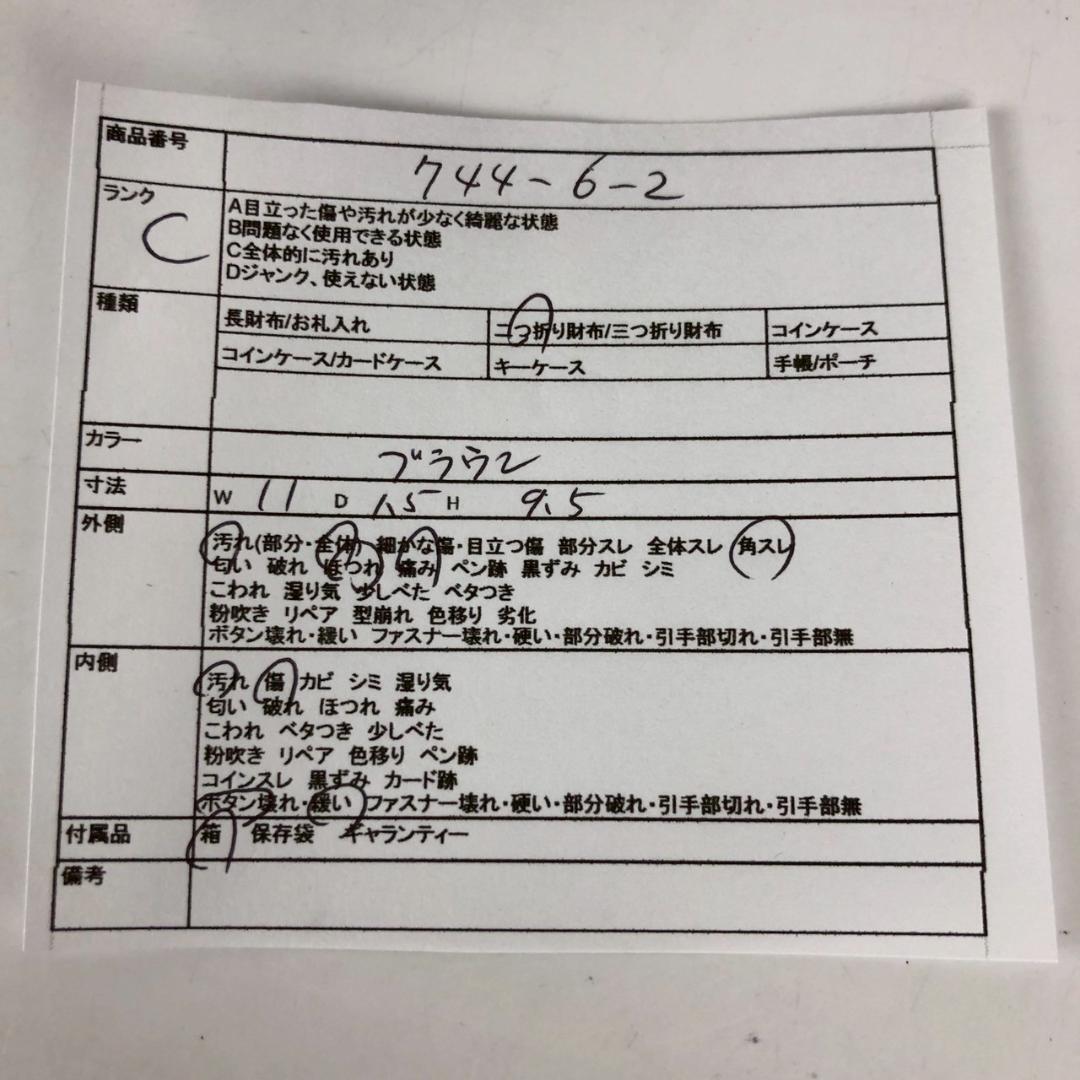 商品番号
744-6-2
ランク
C
A目立った傷や汚れが少なく綺麗な状態
B問題なく使用できる状態
C全体的に汚れあり
Dジャンク、使えない状態
種類
長財布/お札入れ 二つ折り財布/三つ折り財布 コインケース
コインケース/カードケース キーケース 手帳/ポーチ
カラー
ブラウン
寸法
W 11 D 1.5 H 9.5
外側
汚れ(部分・全体) 細かな傷・目立つ傷 部分スレ 全体スレ 角スレ
匂い 破れ ほつれ 痛み ペン跡 黒ずみ カビ シミ
こわれ 湿り気 少しべた ベタつき
粉吹き リペア 型崩れ 色移り 劣化
ボタン壊れ・緩い ファスナー壊れ・硬い・部分破れ・引手部切れ・引手部無
内側
汚れ 傷 カビ シミ 湿り気
匂い 破れ ほつれ 痛み
こわれ ベタつき 少しべた
粉吹き リペア 色移り ペン跡
コインスレ 黒ずみ カード跡
ボタン壊れ・緩い ファスナー壊れ・硬い・部分破れ・引手部切れ・引手部無
付属品
箱 保存袋 ギャランティー
備考